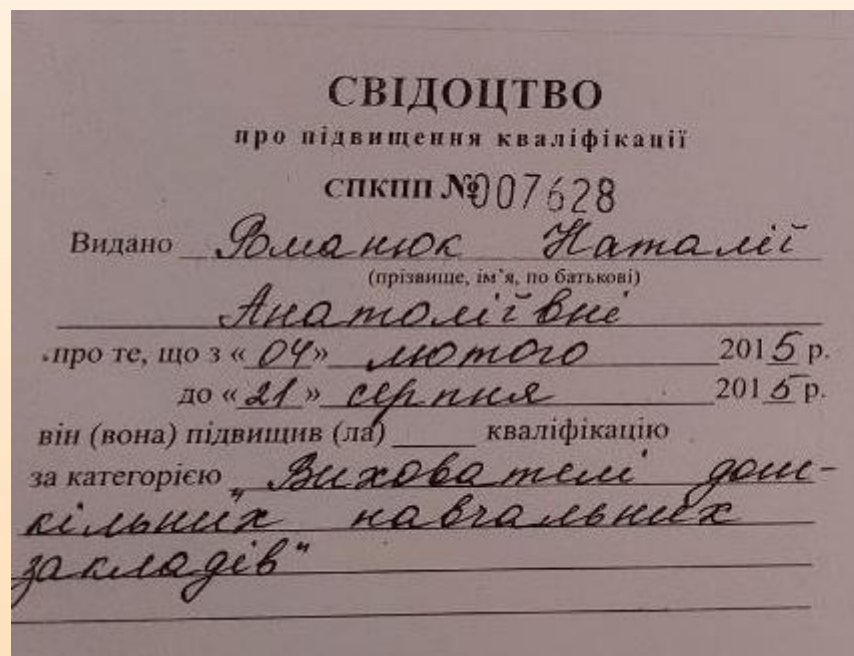 СВІДОЦТВО
про підвищення кваліфікації
СПКПП №007628
Видано Романюк Наталії
(прізвище, ім’я, по батькові)
Анатоліївні
про те, що з «04» лютого 2015 р.
до «21» серпня 2015 р.
він (вона) підвищив (ла) кваліфікацію
за категорією „Вихователі дош-
кільних навчальних
закладів"